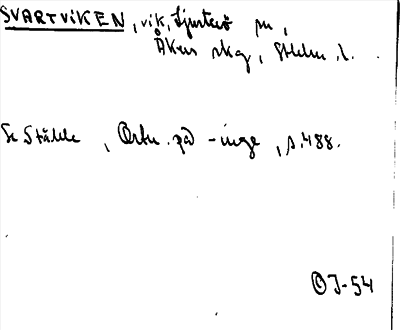 SVARTVIKEN, vik, Ljusterö sn,
Åkers skg, Sthlms l.
Se Ståhle, Ortn. på -inge, s. 488.
OJ-54